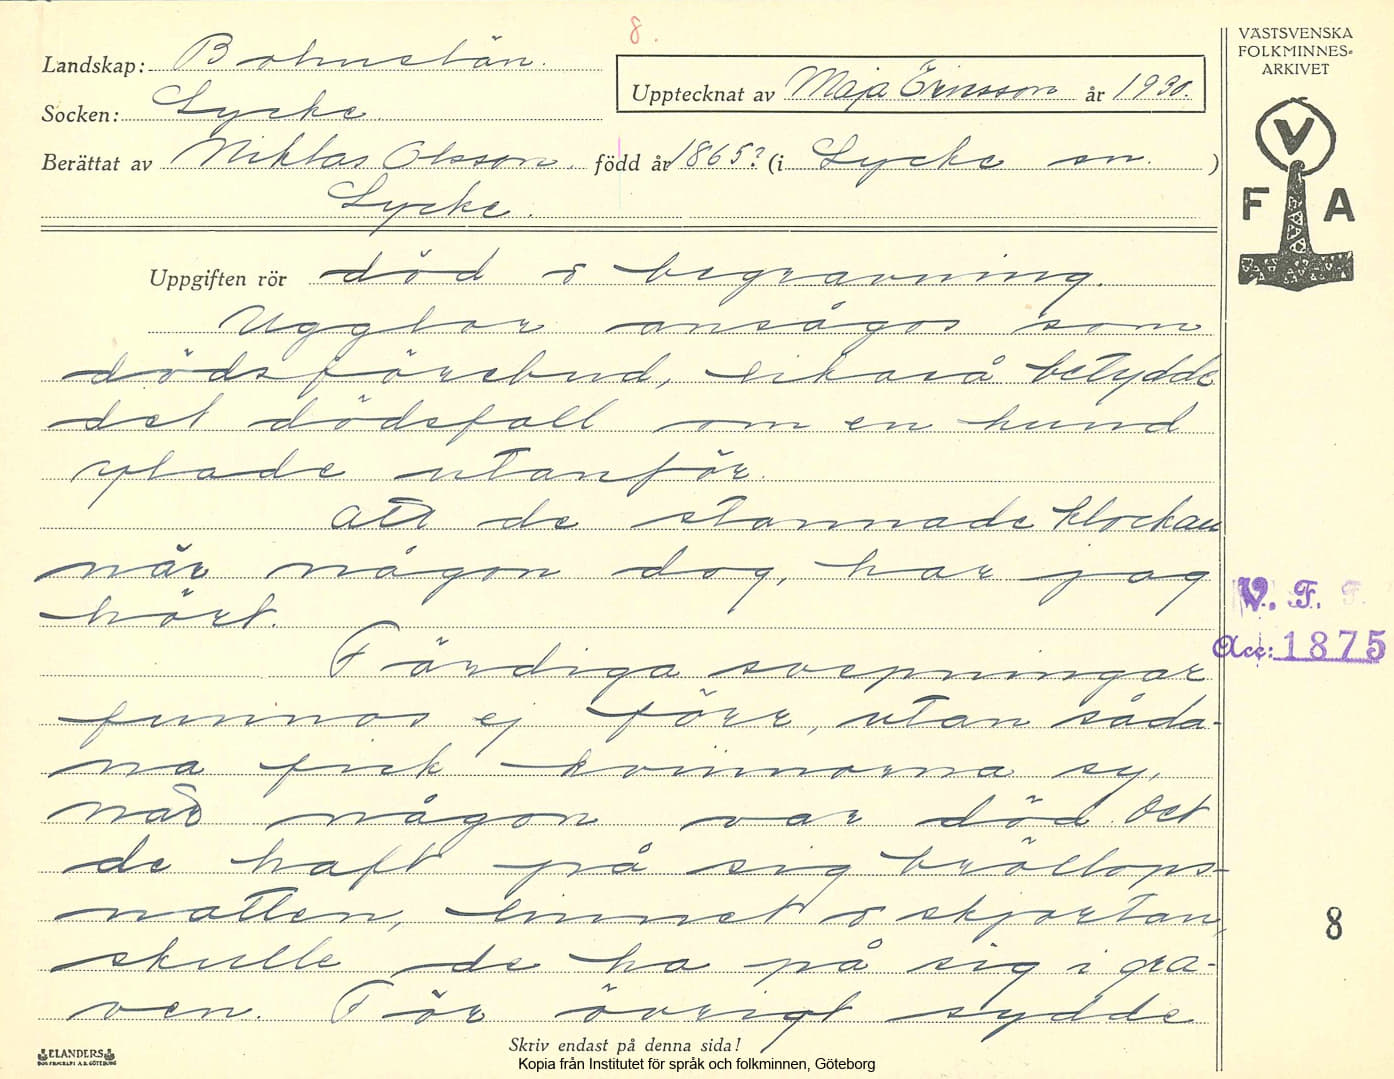 8.
Landskap: Bohuslän.
Upptecknat av Maja Ericsson år 1930.
Socken: Lycke.
Berättat av Niklas Olsson, född år 1865? (i Lycke sn. )
Lycke.
Uppgiften rör död o begravning.
Ugglor ansågos som
dödsförebud, likaså betydde
det dödsfall om en hund
ylade utanför.
Att de stannade klockan
när någon dog, har jag
hört.
Färdiga svepningar
funnos ej förr, utan såda-
na fick kvinnorna sy,
när någon var död. Det
de haft på sig bröllops-
natten, linnet o skjortan,
skulle de ha på sig i gra-
ven. För övrigt sydde
Skriv endast på denna sida!
Kopia från Institutet för språk och folkminnen, Göteborg
ELANDERS
VÄSTSVENSKA
FOLKMINNES-
ARKIVET
V
F A
V. F. F.
Acc: 1875
8